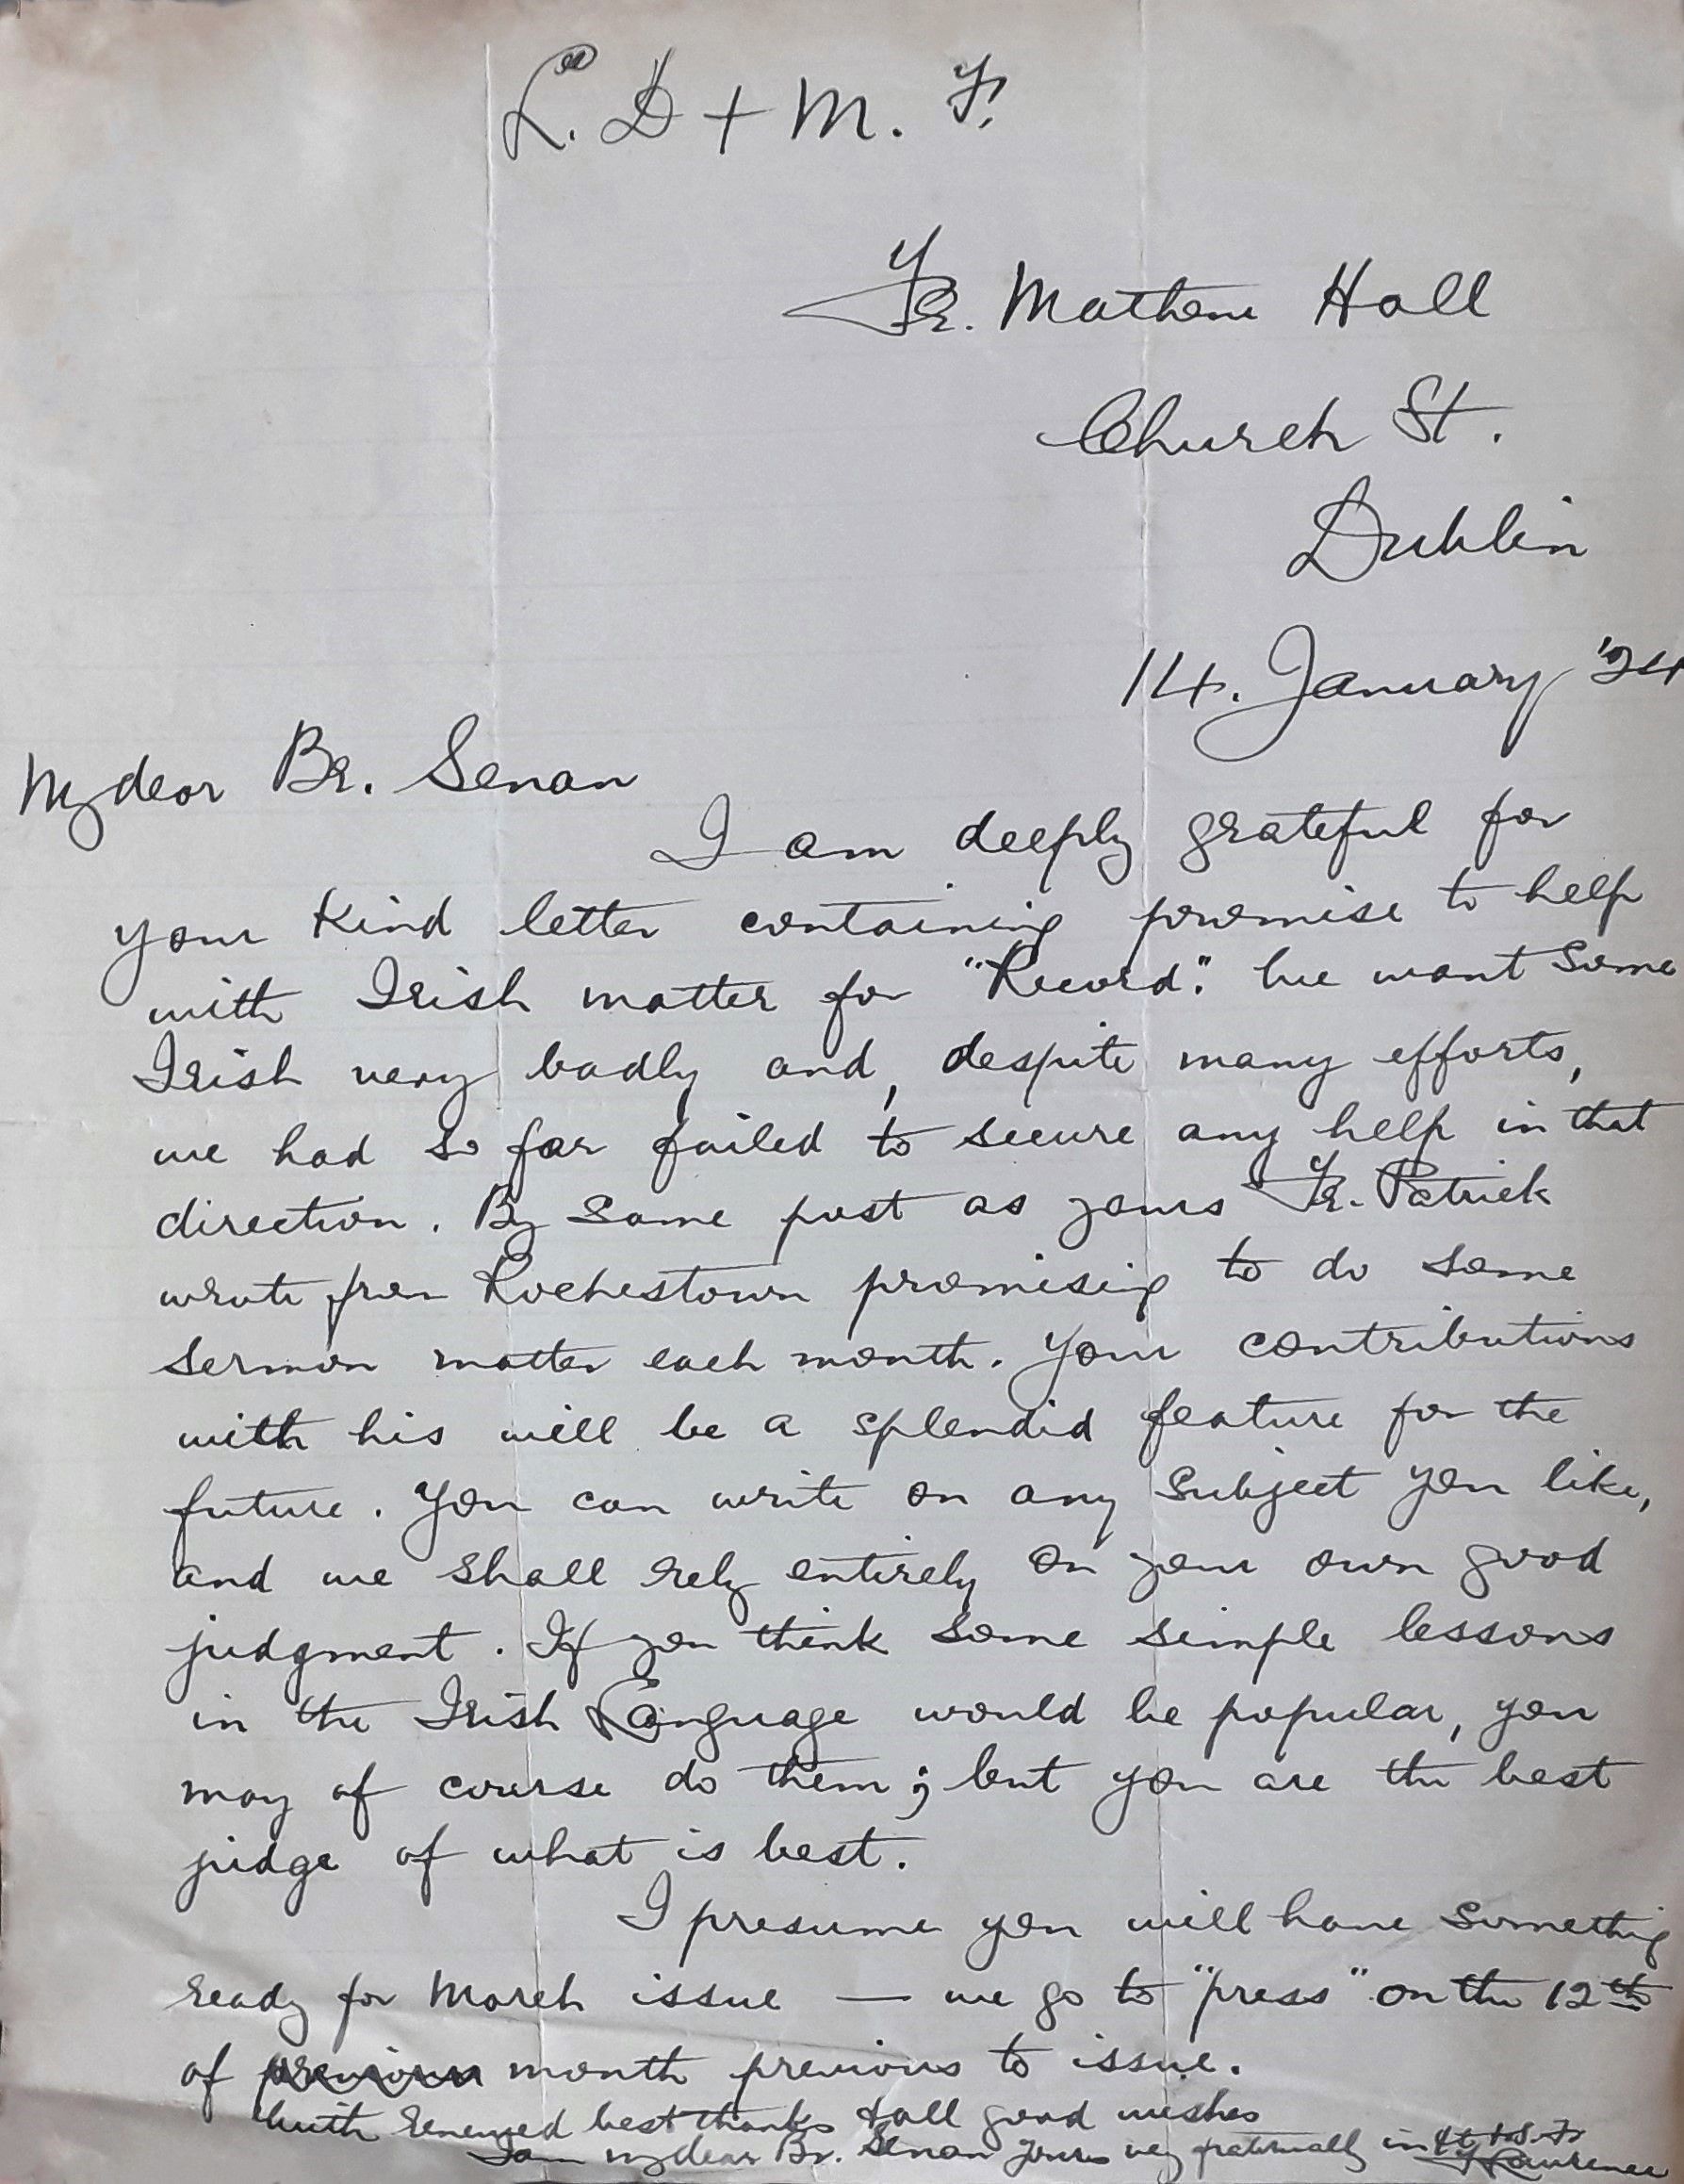 L. D + M. F.
Fr. Mathew Hall
Church St.
Dublin
14. January '24
My dear Br. Senan
I am deeply grateful for
your kind letter containing promise to help
with Irish matter for "Record". We want some
Irish very badly and, despite many efforts,
we had so far failed to secure any help in that
direction. By same post as yours Fr. Patrick
wrote from Rochestown promising to do some
sermon matter each month. Your contributions
with his will be a splendid feature for the
future. You can write on any subject you like,
and we shall rely entirely on your own good
judgment. If you think some simple lessons
in the Irish Language would be popular, you
may of course do them; but you are the best
judge of what is best.
I presume you will have something
ready for March issue — we go to "press" on the 12th
of previous month previous to issue.
With renewed best thanks & all good wishes
I am my dear Br. Senan yours very fraternally in
Laurence